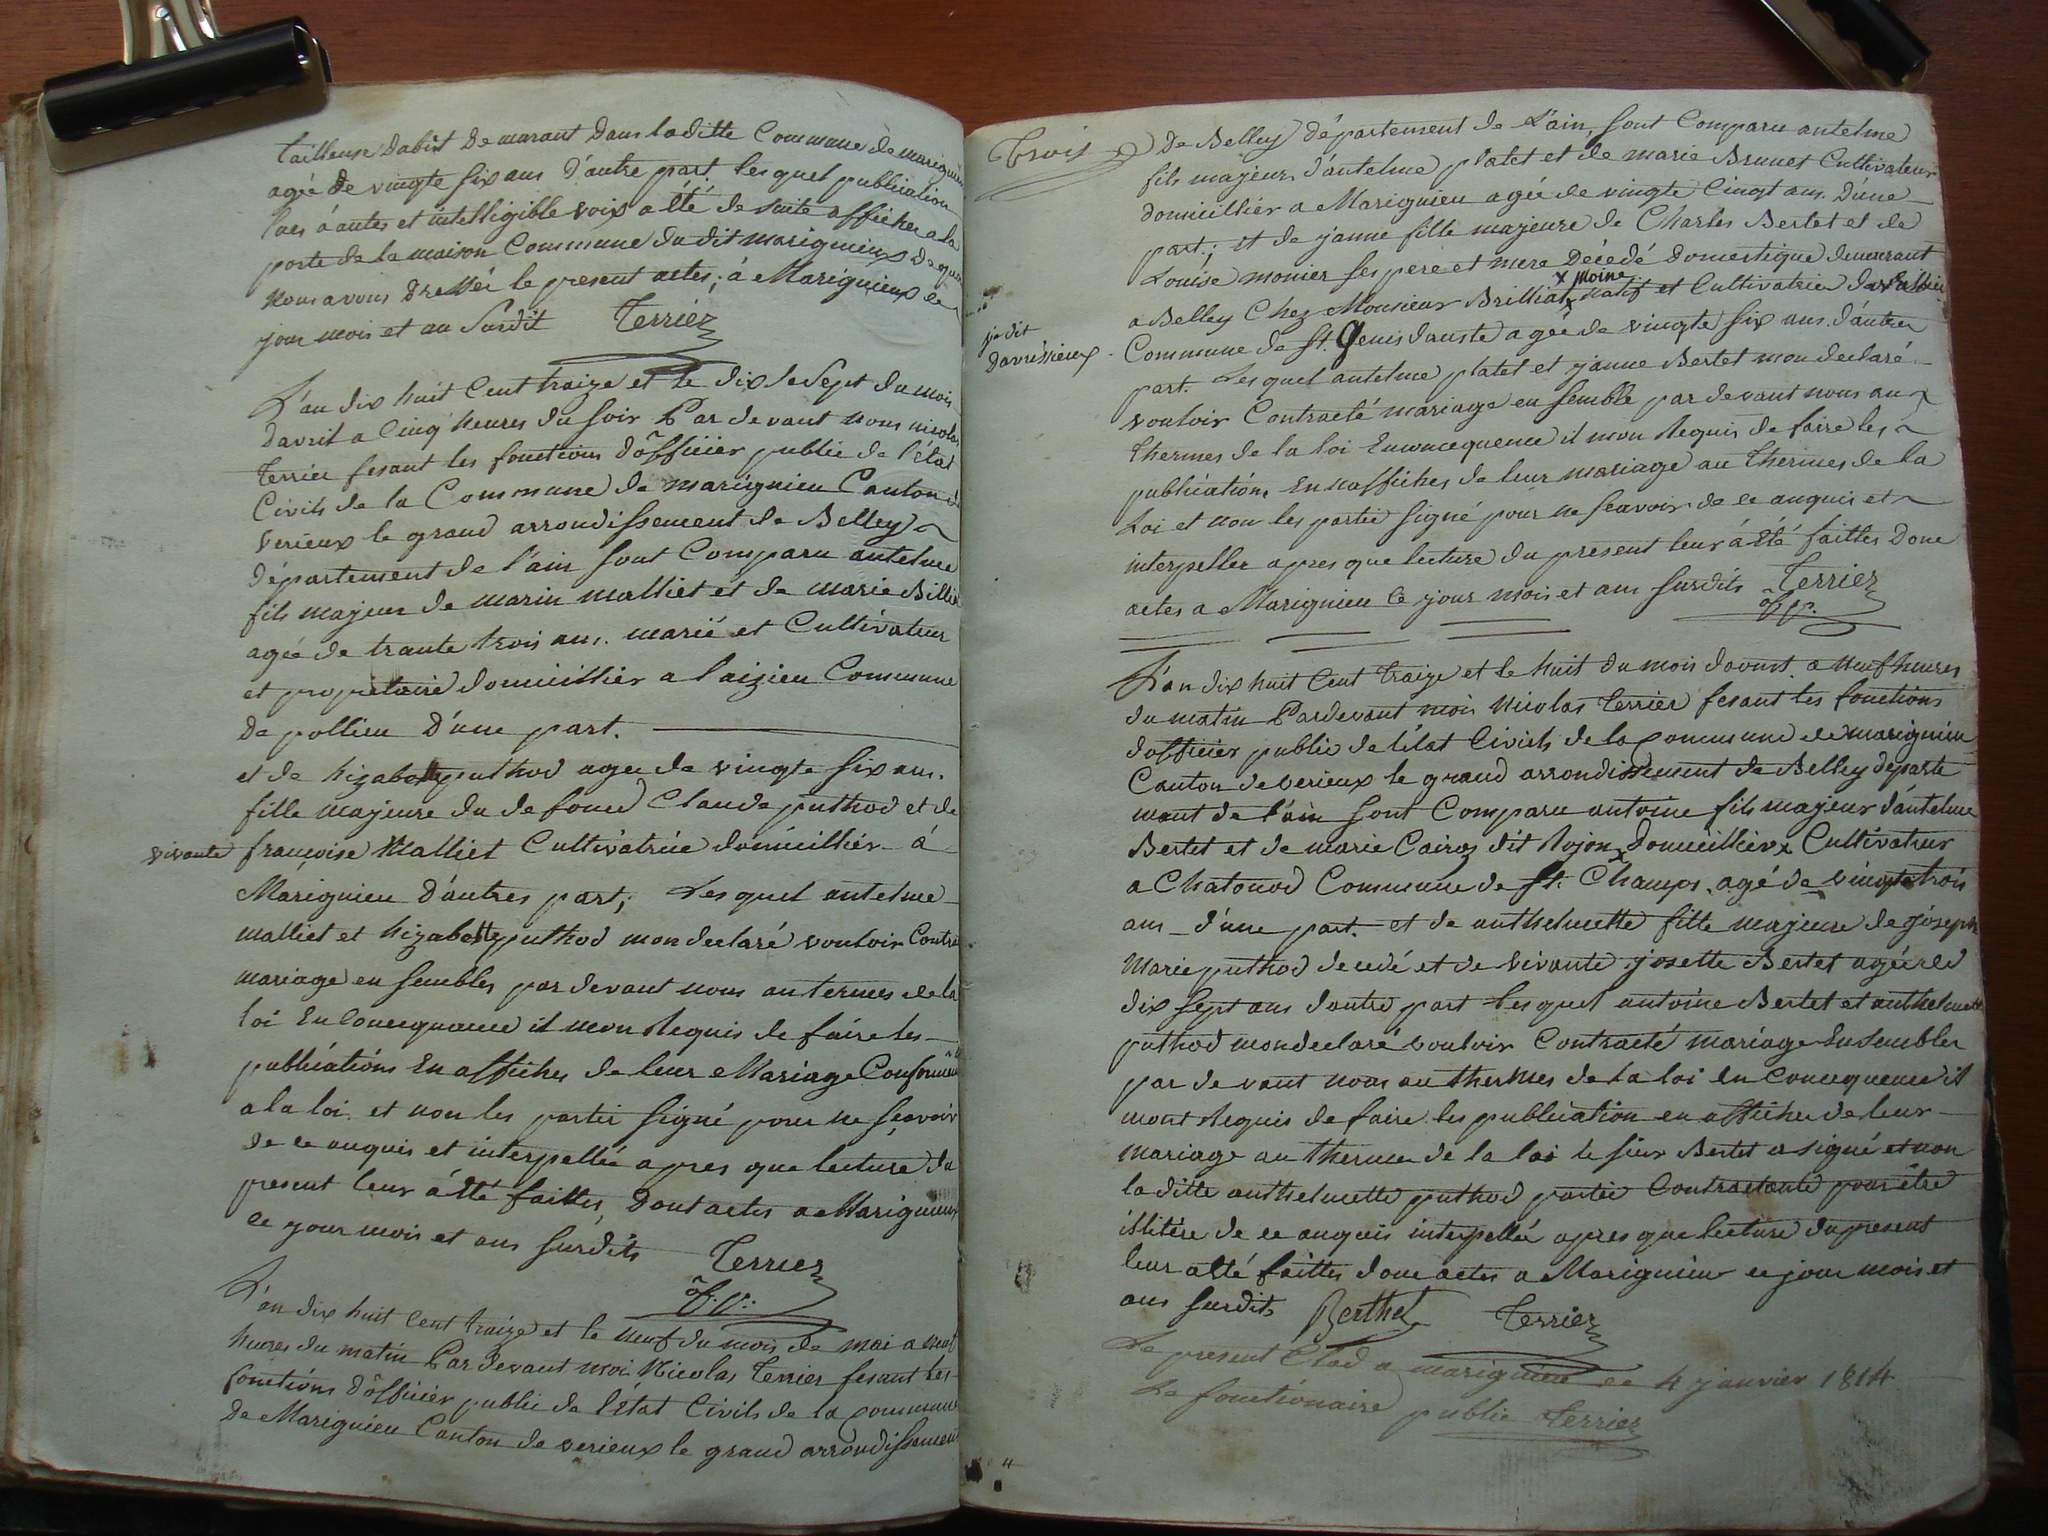 tailleuse dabit demarant dans laditte Commune de marignieu
agée de vingte six ans d'autre part, lesquel publication
lues á autes et intelligible voix a été de suite affichee a la
porte de la maison Commune du dit marignieux de quoi
nous avons dressér le present actes; á Marignieux ce
jour mois et an Susdit Terrier
L'an dix huit Cent traize et le dix le Sept du mois
davril a Cinq heures du soir Par devant nous nicolas
Terrier fesant les fonctions d'officier public de l'état
Civils de la Commune de marignieu Canton de
verieux le grand arrondissement de Belley
département de l'ain sont Comparu antelme
fils majeur de marin malliet et de marie Billiet
agée de trante trois ans. marié et Cultivateur
et proprietaire domicillier a laizieu Commune
De pollieu D'une part.
et de hizabette puthod agée de vingte six ans.
fille majeure du defound Claude puthod et de
vivante françoise Malliet Cultivatrice domicillier á
Marignieu d'autres part; Lesquel antelme
malliet et hizabette puthod mon declaré vouloir Contra
mariage en sembles par devant nous au termes de la
loi En Concequance il mon Requis de faire les
publications En affiches de leur Mariage Conformem
a la loi et non les partie signé pour ne sçavoir
de ce anquis et interpellée apres que lecture du
present leur á été faittes, Dont actes a Marignieux
ce jour mois et ans susdits Terrier
off. p.
L'an dix huit Cent traize et le neuf du mois de mai a neuf
heures du matin Par devant moi Nicolas Terrier fesant les
fonctions d'officier public de l'état Civils de la Commune
De Marignieu Canton de verieux le grand arrondissement
Trois De Belley département de L'ain, sont Comparu antelme
fils majeurs d'antelme platet et de marie Brunet Cultivateur
domicillier a Marignieu agée de vingte Cingt ans. D'une
part; et de janne fille majeure de Charles Bertet et de
Louise monier ses pere et mere Décédé domestique demeurant
x moine
a Belley Chez Monsieur Brilliat x natif et Cultivatrice
jedit
davressieux Commune de St. Genis dauste agée de vingte six ans d'autre
part. Lesquel antelme platet et janne Bertet mon declaré
vouloir Contracté mariage en semble par devant nous au
Thermes de la loi Enconcequence il mon Requis de faire les
publications En affiches de leur mariage au Thermes de la
Loi et non les partie signé pour ne scavoir de ce anquis et
interpellee apres que lecture du present leur á été faittes Donc
actes a Marignieu ce jour mois et ans susdits Terrier
off. p.
L'an dix huit Cent traize et le huit du mois d'avust. a neuf heures
du matin Pardevant moi Nicolas Terrier fesant les fonctions
d'officier public de létat Civils de la Commune de marignieu
Canton de verieux le grand arrondissement de Belley departe
ment de l'ain sont Comparu antoine fils majeur d'antelme
Bertet et de marie Cairoz dit Rojon x Domicillier x Cultivateur
a Chatonod Commune de St. Champs. agé de vingte trois
ans d'une part. et de anthelmette fille majeure de joseph
Marie puthod decedé et de vivante josette Bertet agée de
dix sept ans d'autre part lesquel antoine Bertet et anthelmette
puthod mon declaré vouloir Contracté mariage Ensembles
par devant nous au thermes de la loi en Concequence il
mont Requis de faire les publication en affiche de leur
mariage au therme de la loi le sieur Bertet a signé et non
laditte anthelmette puthod partie Contractante pour être
illitére de ce anquis interpellée apres que lecture du present
leur a été faittes donc actes a Marignieu ce jour mois et
ans susdits Berthet Terrier
Le present Clod a marignieu ce 4 janvier 1814
Le fonctionaire public Terrier